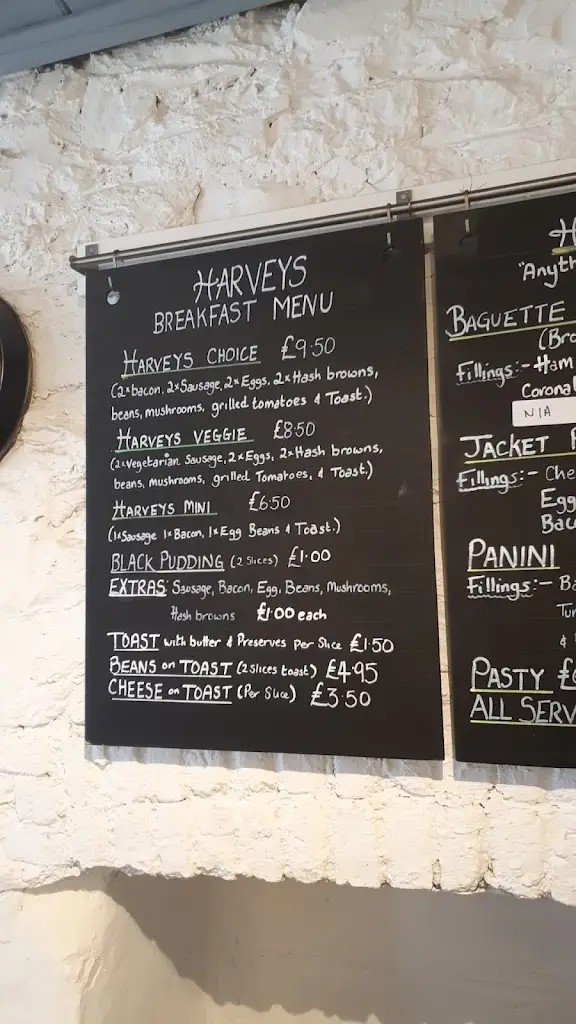 HARVEYS
BREAKFAST MENU
HARVEYS CHOICE £9.50
(2xbacon, 2xSausage, 2xEggs, 2xHash browns,
beans, mushrooms, grilled tomatoes & Toast.)
HARVEYS VEGGIE £8.50
(2xVegetarian Sausage, 2xEggs, 2xHash browns,
beans, mushrooms, grilled Tomatoes, & Toast.)
HARVEYS MINI £6.50
(1xSausage 1xBacon, 1xEgg Beans & Toast.)
BLACK PUDDING (2 Slices) £1.00
EXTRAS: Sausage, Bacon, Egg, Beans, Mushrooms,
Hash browns £1.00 each
TOAST with butter & Preserves per Slice £1.50
BEANS on TOAST (2 Slices toast) £4.95
CHEESE on TOAST (Per Slice) £3.50
BAGUETTE
Fillings:- Ham
N/A
JACKET
Fillings:-
PANINI
Fillings:-
&
PASTY
ALL